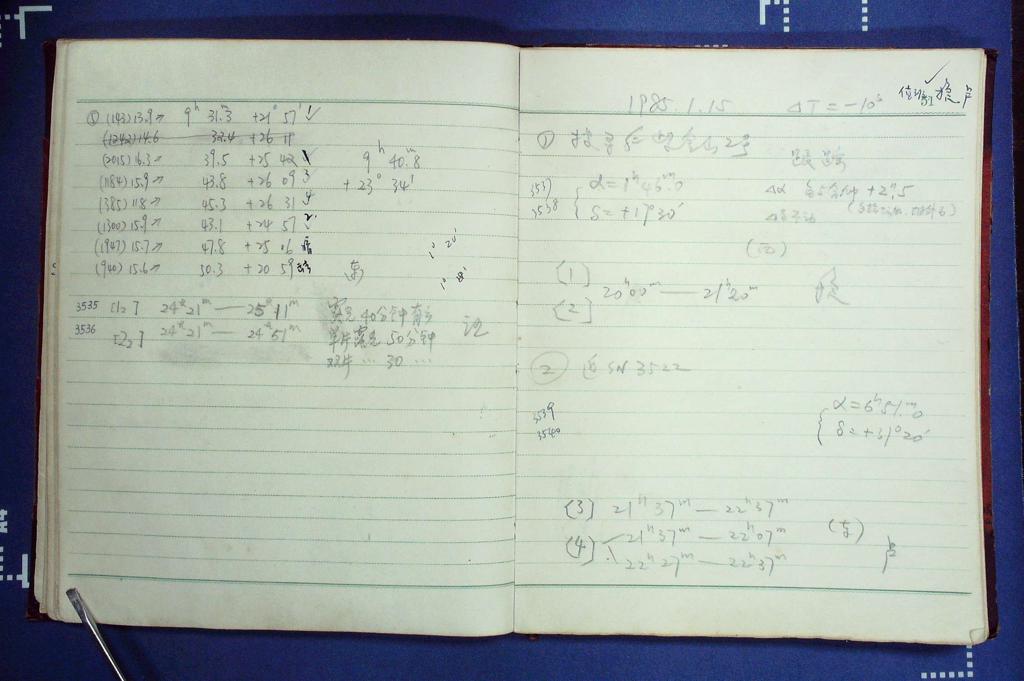 ① (143) 13.9 → 9ʰ 31.ᵐ3 +21° 57′ ✓
(1242) 14.6 32.4 +26 11
(2015) 16.3 → 39.5 +25 42
(1184) 15.9 → 43.8 +26 09
(1385) 118 → 45.3 +26 31
(1300) 15.9 → 43.1 +24 57
(1947) 15.7 → 47.8 +25 06
(940) 15.6 → 50.3 +20 59
9ʰ 40.ᵐ8
+23° 34′
1° 20′
1° 18′
(东)
3535 [12] 24ʰ21ᵐ — 25ʰ11ᵐ 露光40分钟有云
3536 [22] 24ʰ21ᵐ — 24ʰ51ᵐ 单片露光50分钟
双片 … 30 …
1985.1.15 ΔT=-10ˢ
①
跟踪
3537 α=1ʰ46ᵐ.0 Δα 每5分钟 +2.5
3538 δ=+17°30′
(西)
[1]
20ʰ00ᵐ — 21ʰ20ᵐ
[2]
② 近 SN 3522
3539 α=6ʰ51.ᵐ0
3540 δ=+31°20′
[3] 21ʰ37ᵐ — 22ʰ37ᵐ
[4] 21ʰ37ᵐ — 22ʰ07ᵐ (东)
22ʰ27ᵐ — 22ʰ37ᵐ